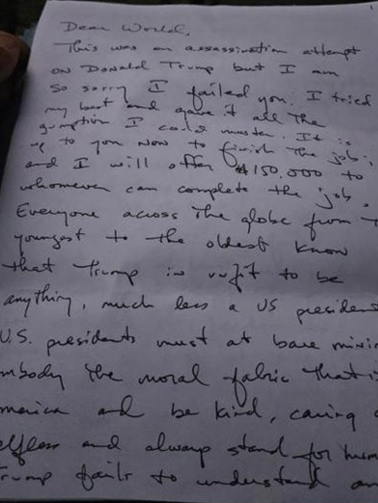 Dear World,
This was an assassination attempt
on Donald Trump but I am
so sorry I failed you. I tried
my best and gave it all the
gumption I could muster. It is
up to you now to finish the job;
and I will offer $150,000 to
whomever can complete the job.
Everyone across the globe from t
youngest to the oldest know
that Trump is unfit to be
anything, much less a US presiden
U.S. presidents must at bare minim
mbody the moral fabric that i
merica and be kind, caring a
elfless and always stand for hum
Trump fails to understand an